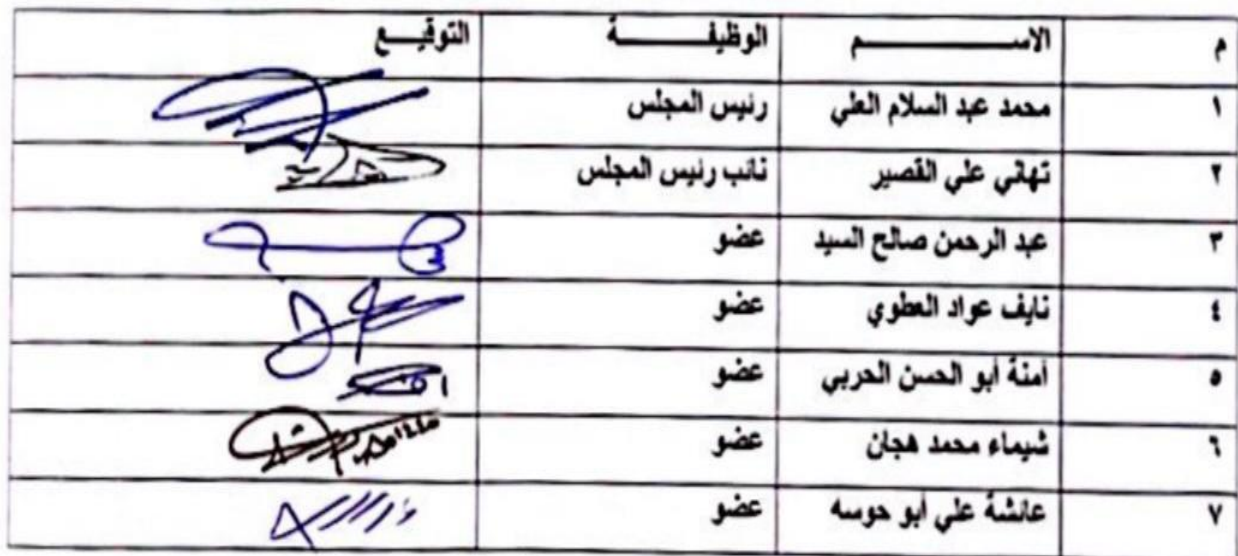 م الاســـــــــم الوظيفـــــــة التوقيـــع
١ محمد عبد السلام العلي رئيس المجلس
٢ تهاني علي القصير نائب رئيس المجلس
٣ عبد الرحمن صالح السيد عضو
٤ نايف عواد العطوي عضو
٥ امنة أبو الحسن الحربي عضو
٦ شيماء محمد هجان عضو
٧ عائشة علي أبو حوسه عضو